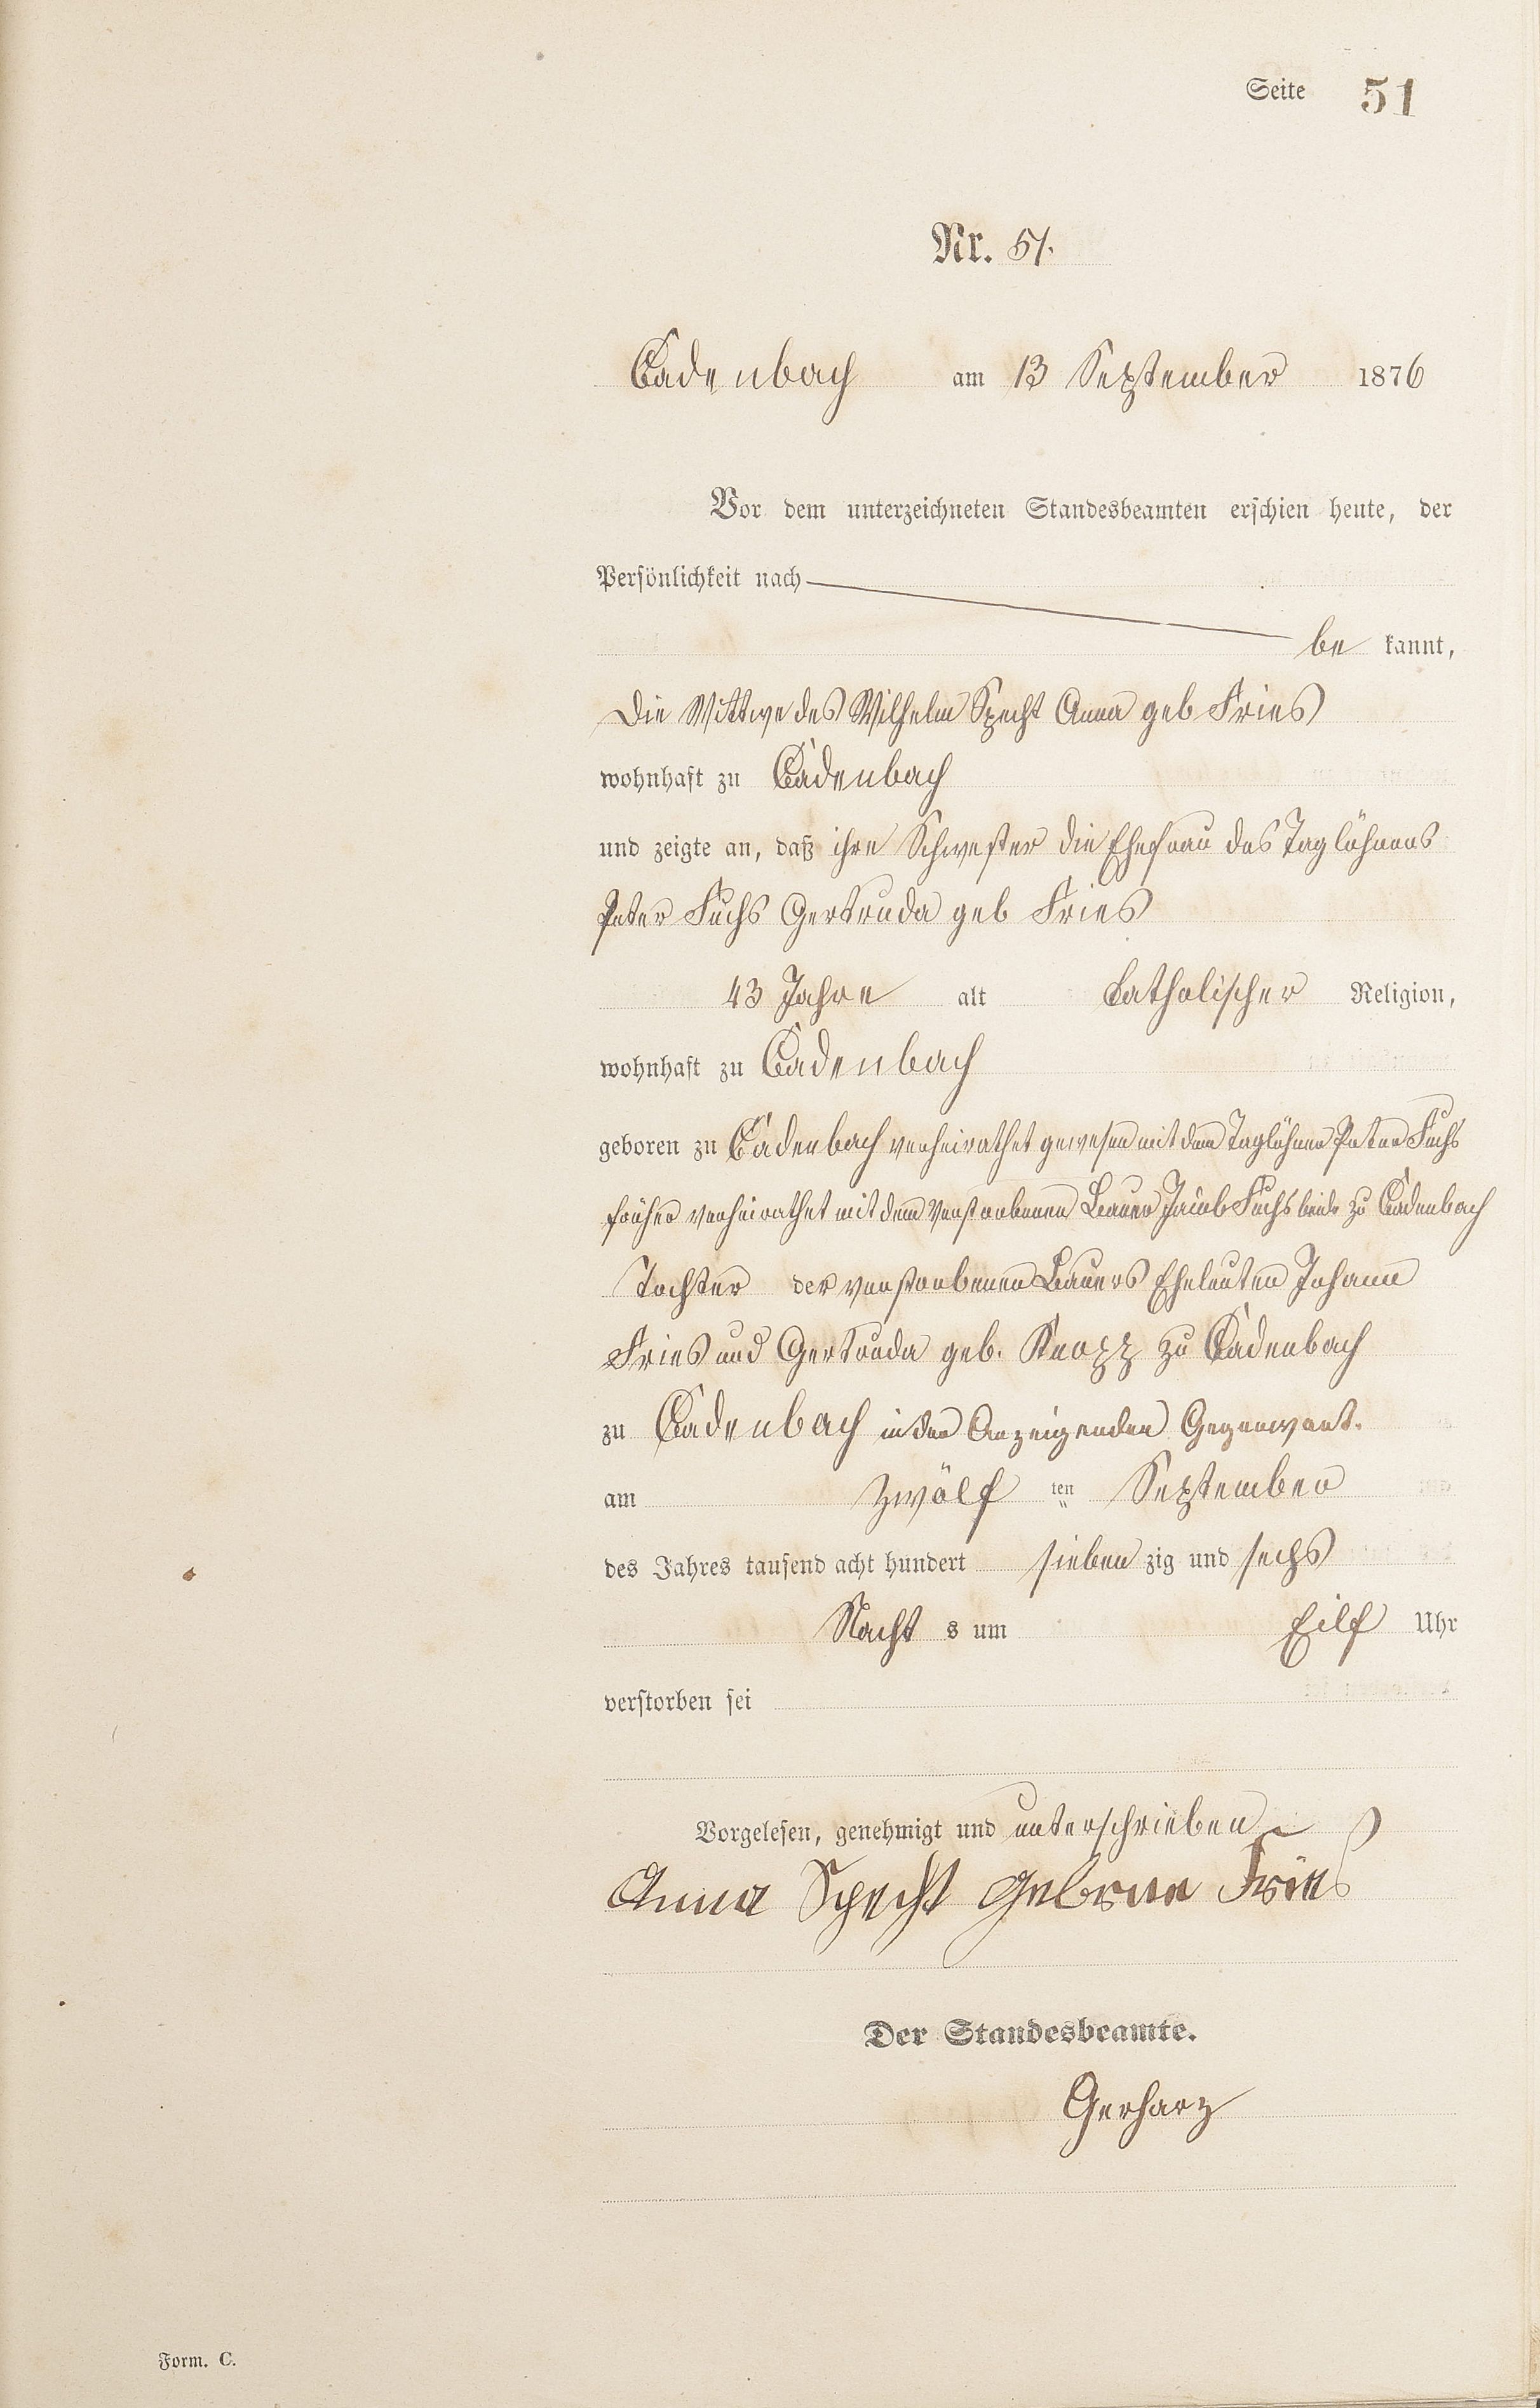 Seite 51
Nr. 51.
Cadenbach am 13 September 1876
Vor dem unterzeichneten Standesbeamten erschien heute, der
Persönlichkeit nach
be kannt,
Die Wittwe des Wilhelm Specht Anna geb Fries
wohnhaft zu Cadenbach
und zeigte an, daß ihre Schwester die Ehefrau des Taglöhners
Peter Fuchs Gertruda geb Fries
43 Jahre alt Catholischer Religion,
wohnhaft zu Cadenbach
geboren zu Cadenbach verheirathet gewesen mit dem Taglöhner Peter Fuchs
früher verheirathet mit dem verstorbenen Bauer Jacob Fuchs beide zu Cadenbach
Tochter der verstorbenen Bauers Eheleuten Johann
Fries und Gertruda geb. Knopp zu Cadenbach
zu Cadenbach in der Anzeigenden Gegenwart.
am zwölf ten September
des Jahres tausend acht hundert sieben zig und sechs
Nacht s um Eilf Uhr
verstorben sei
Vorgelesen, genehmigt und unterschrieben
Anna Specht Geborne Fries
Der Standesbeamte.
Gerharz
Form. C.